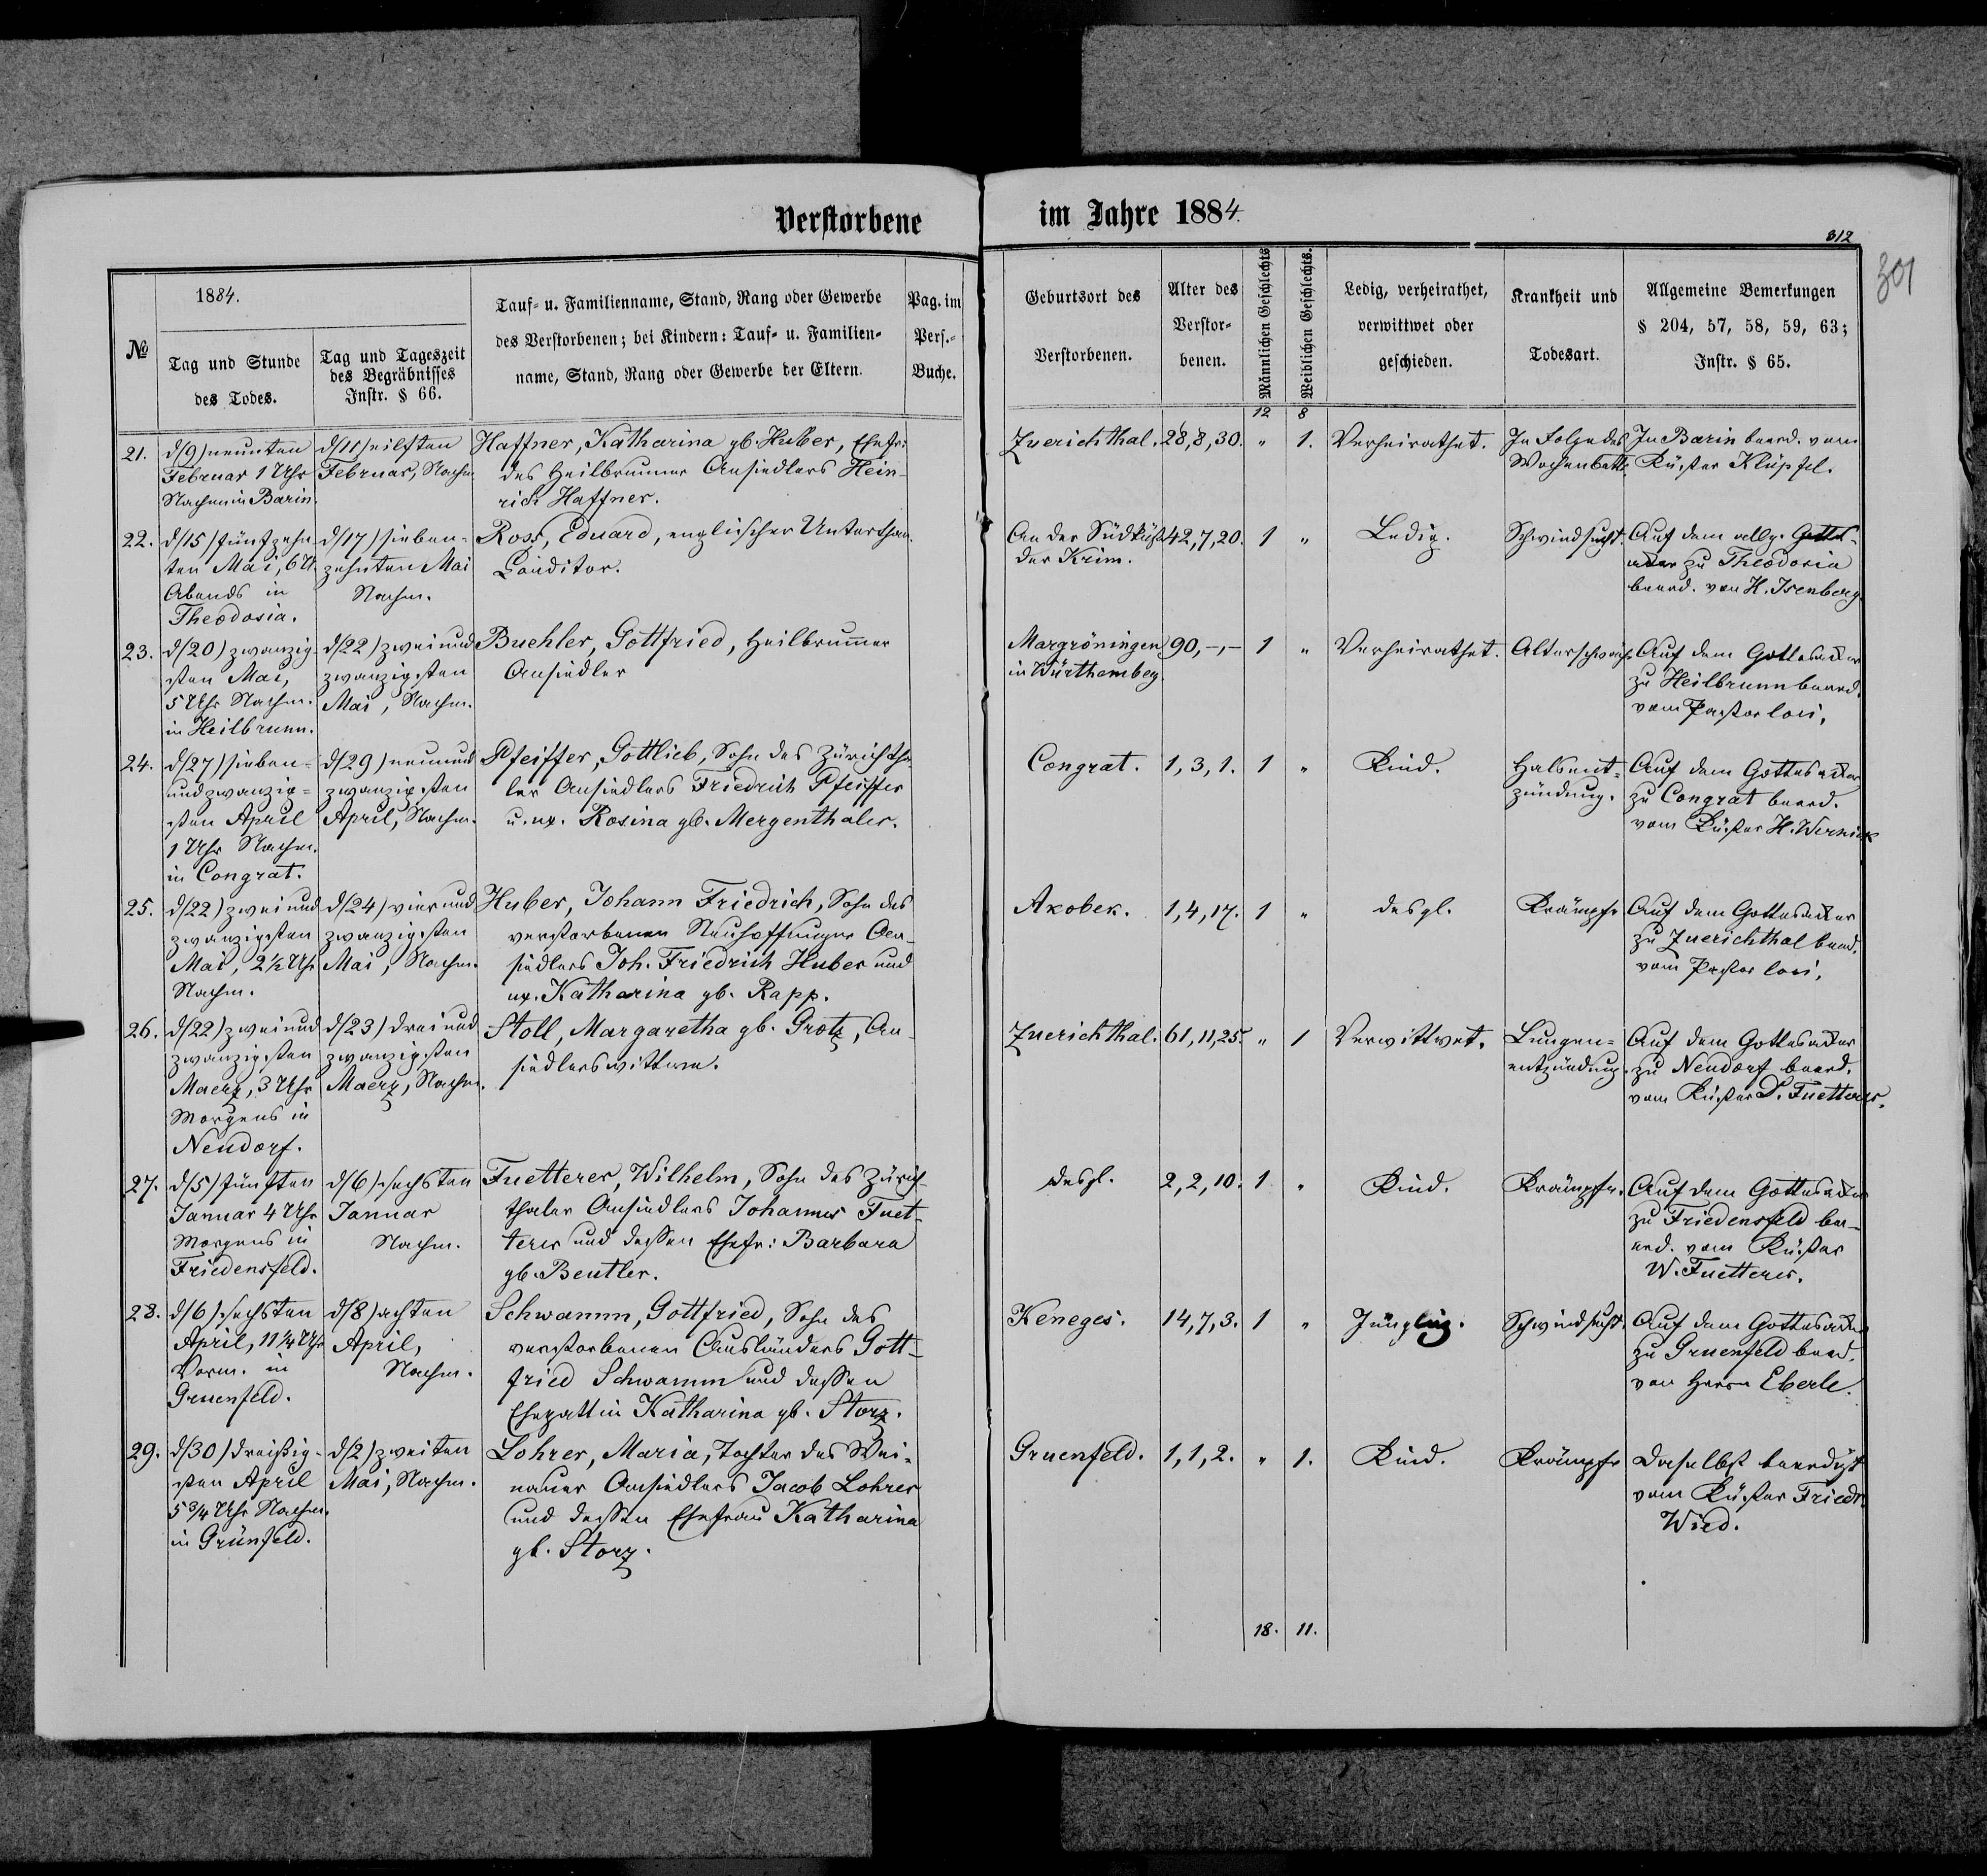 Verstorbene im Jahre 1884.
312
301
№
1884.
Tag und Stunde
des Todes.
Tag und Tageszeit
des Begräbnisses
Instr. § 66.
Tauf- u. Familienname, Stand, Rang oder Gewerbe
des Verstorbenen; bei Kindern: Tauf- u. Familien-
name, Stand, Rang oder Gewerbe der Eltern.
Pag. im
Pers.-
Buche.
Geburtsort des
Verstorbenen.
Alter des
Verstor-
benen.
Männlichen Geschlechts
Weiblichen Geschlechts.
Ledig, verheirathet,
verwittwet oder
geschieden.
Krankheit und
Todesart.
Allgemeine Bemerkungen
§ 204, 57, 58, 59, 63;
Instr. § 65.
12 8
21.
d/9) neunten
Februar 1 Uhr
Nachm in Barin.
d/11) eilften
Februar, Nachm.
Haffner, Katharina gb. Huber, Ehefr:
des Heilbrunner Ansiedlers Hein-
rich Haffner.
Zuerichthal.
28,8,30.
" 1.
Verheirathet.
In Folge des
Wochenbetts.
In Barin beerd. vom
Küster Klüpfel.
22.
d/15) fünfzehn-
ten Mai, 6 U.
Abends in
Theodosia.
d/17) sieben-
zehnten Mai
Nachm.
Ross, Eduard, englischer Unterthan.
Conditor.
An der Südküste
der Krim.
42,7,20.
1 "
Ledig.
Schwindsucht.
Auf dem allg. Gottes-
acker zu Theodosia
beerd. von H. Isenberg.
23.
d/20) zwanzig-
sten Mai,
5 Uhr Nachm.
in Heilbrunn.
d/22) zwei und
zwanzigsten
Mai, Nachm.
Buehler, Gottfried, Heilbrunner
Ansiedler
Margröningen
in Würthemberg.
90,-,-
1 "
Verheirathet.
Altersschwäche
Auf dem Gottesacker
zu Heilbrunn beerd.
vom Pastor loci.
24.
d/27) sieben-
und zwanzig-
sten April
1 Uhr Nachm.
in Congrat.
d/29) neun und
zwanzigsten
April, Nachm.
Pfeiffer, Gottlieb, Sohn des Zürichtha-
ler Ansiedlers Friedrich Pfeiffer
u. ux. Rosina gb. Mergenthaler.
Congrat.
1,3,1.
1 "
Kind.
Halsent-
zündung.
Auf dem Gottesacker
zu Congrat beerd.
vom Küster H. Wernick
25.
d/22) zwei und
zwanzigsten
Mai, 2½ Uhr
Nachm.
d/24) vier und
zwanzigsten
Mai, Nachm.
Huber, Johann Friedrich, Sohn des
verstorbenen Neuhoffnunger An-
siedlers Joh. Friedrich Huber und
ux. Katharina gb. Rapp.
Akobek.
1,4,17.
1 "
desgl.
Krämpfe
Auf dem Gottesacker
zu Zuerichthal beerd.
vom Pastor loci.
26.
d/22) zwei und
zwanzigsten
Maerz, 3 Uhr
Morgens in
Neudorf.
d/23) drei und
zwanzigsten
Maerz, Nachm.
Stoll, Margaretha gb. Grotz, An-
siedlerswittwe.
Zuerichthal.
61,11,25.
" 1
Verwittwet.
Lungen-
entzündung.
Auf dem Gottesacker
zu Neudorf beerd.
vom Küster D. Fuetterer.
27.
d/5) fünften
Januar 4 Uhr
Morgens in
Friedensfeld.
d/6) sechsten
Januar
Nachm.
Fuetterer, Wilhelm, Sohn des Zürich-
thaler Ansiedlers Johannes Fuet-
terer und dessen Ehefr: Barbara
gb. Beutler.
desgl.
2,2,10.
1 "
Kind.
Krämpfe.
Auf dem Gottesacker
zu Friedensfeld be-
erd. vom Küster
W. Fuetterer.
28.
d/6) sechsten
April, 11¼ Uhr
Vorm. in
Gruenfeld.
d/8) achten
April,
Nachm.
Schwamm, Gottfried, Sohn des
verstorbenen Ausländers Gott-
fried Schwamm und dessen
Ehegattin Katharina gb. Storz.
Keneges.
14,7,3.
1 "
Jüngling.
Schwindsucht.
Auf dem Gottesacker
zu Gruenfeld beerd.
von Herrn Eberle.
29.
d/30) dreißig-
sten April
5¾ Uhr Nachm.
in Grünfeld.
d/2) zweiten
Mai, Nachm.
Lohrer, Maria, Tochter des Wei-
nauer Ansiedlers Jacob Lohrer
und dessen Ehefrau Katharina
gb. Storz.
Gruenfeld.
1,1,2.
" 1.
Kind.
Krämpfe
Daselbst beerdigt
vom Küster Friedr.
Wied.
18. 11.